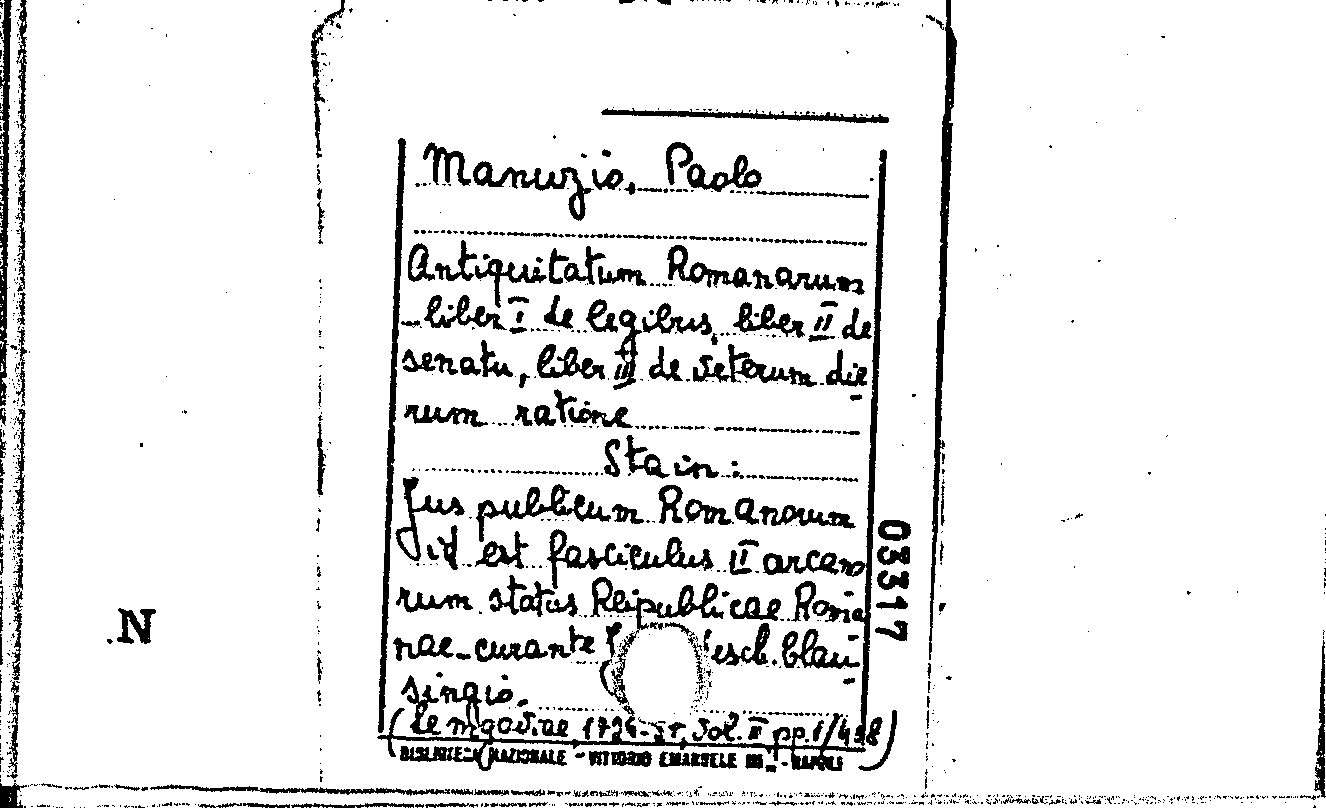 Manuzio, Paolo
Antiquitatum Romanarum
- liber I de legibus, liber II de
senatu, liber III de veterum die
rum ratione
Sta in:
Jus publicum Romanorum
id est fasciculus II arcano
rum status Reipublicae Roma
nae - curante
singio.
vol. II pp. 1/498)
BIBLIOTECA NAZIONALE - VITTORIO EMANUELE III - NAPOLI
03317
N